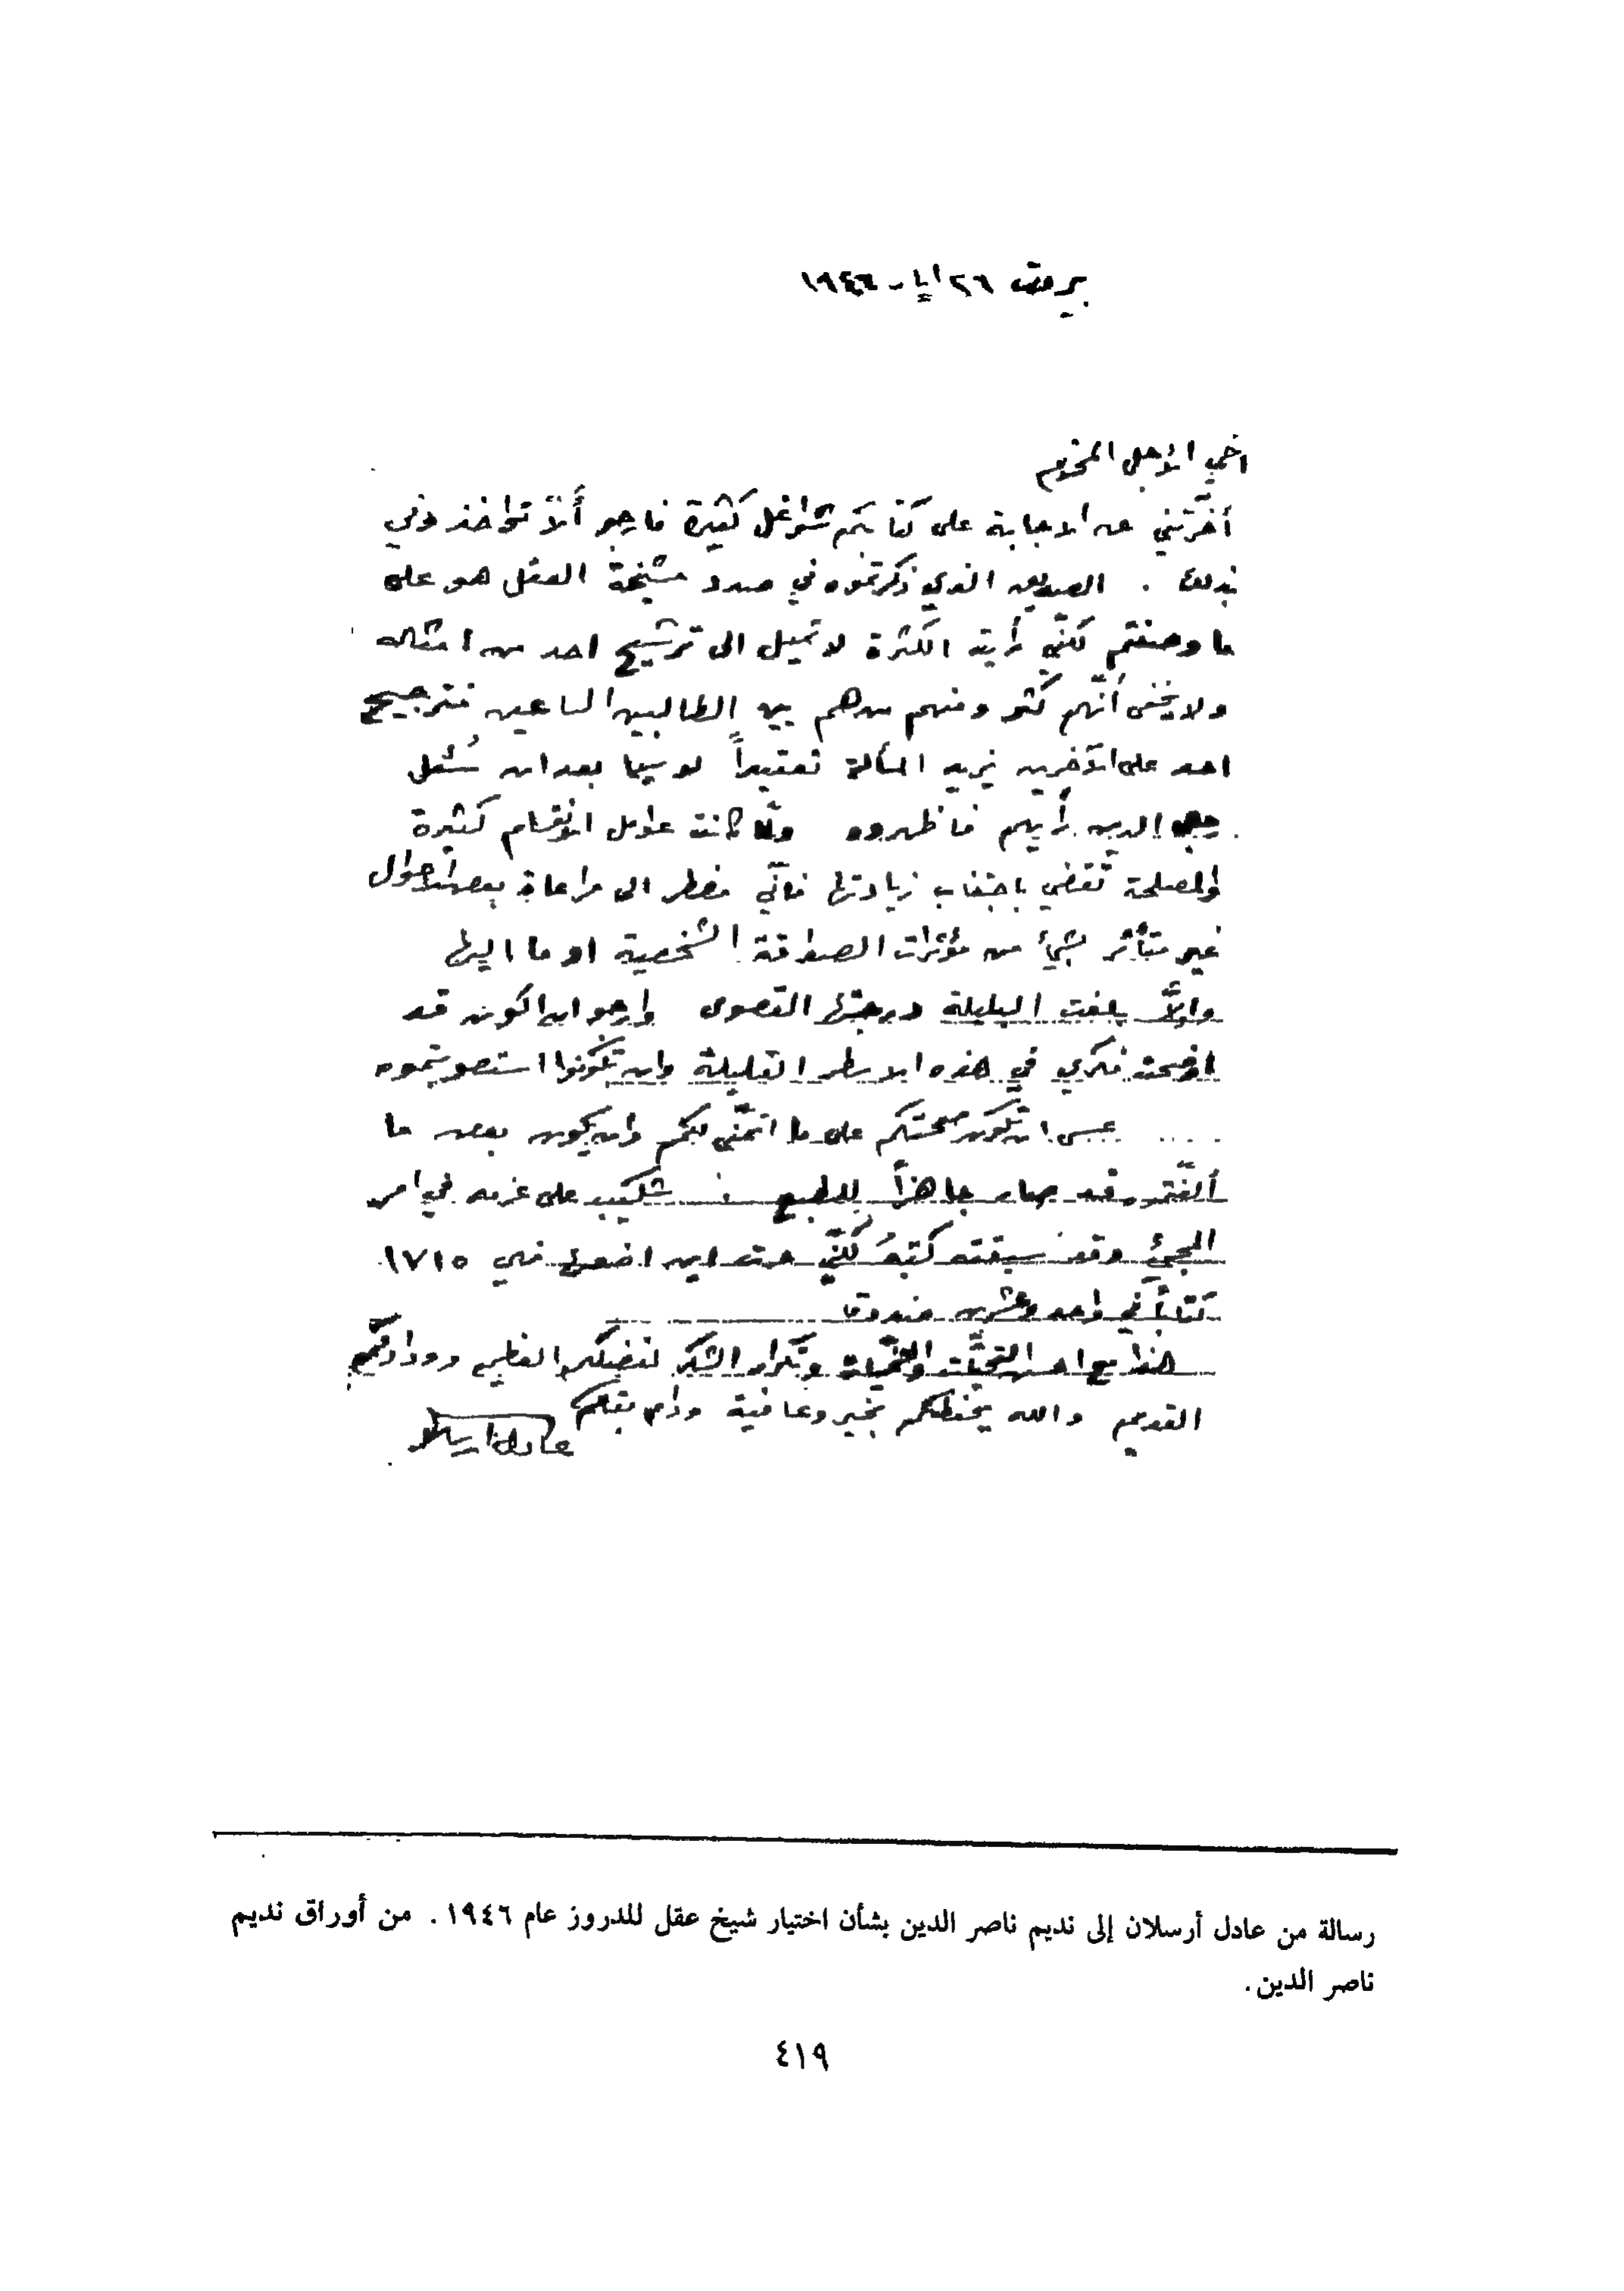 بيروت ٢٦ ايار ١٩٤٦
اخي الأجل المحترم
أخّرتني عن الاجابة على كتابكم شواغل كثيرة فارجو ألاّ تؤاخذوني
بذلك . الصديق الذي ذكرتموه في صدد مشيخة العقل هو على
ما وصفتم لكنّي رأيت الكثرة لا تميل الى ترشيح احد من امثاله
ولا يخفى أنّهم كثر ومنهم من هم بين الطالبين الساعين فترجيح
احد على الآخرين يزيد المسألة تعقيداً لا سيما بعد ان سُئل
رجال الدين رأيهم فاظهروه ولمّا كانت عوامل الانقسام كثيرة
والمصلحة تقضي باجتناب زيادتها فانّي مضطر الى مراعاة بعض الاحوال
غير متأثر بشيء من مؤثرات الصداقة الشخصية او ما اليها
وإلاّ بلغت البلبلة درجتها القصوى وارجو ان اكون قد
اوضحت فكري في هذه الاسطر القليلة وان تكونوا استصوبتموه
.... عسى ان تكون صحتكم على ما اتمنّى لكم وان يكون بعض ما
ألّفتم قد صار جاهزاً للطبع . شكيب على عزمه في امر
المجيء وقد سبقته كتبهُ لكنّي حرت اين اضعها فهي ١٧١٥
كتاباً في واحد وعشرين صندوقا
هذا مع احسن التحيّات والتمنيات وتكرار الشكر لفضلكم العظيم وودادكم
القديم والله يحفظكم بخير وعافية ودام بقاكم
عادل ارسلان
رسالة من عادل أرسلان إلى نديم ناصر الدين بشأن اختيار شيخ عقل للدروز عام ١٩٤٦. من أوراق نديم
ناصر الدين.
٤١٩